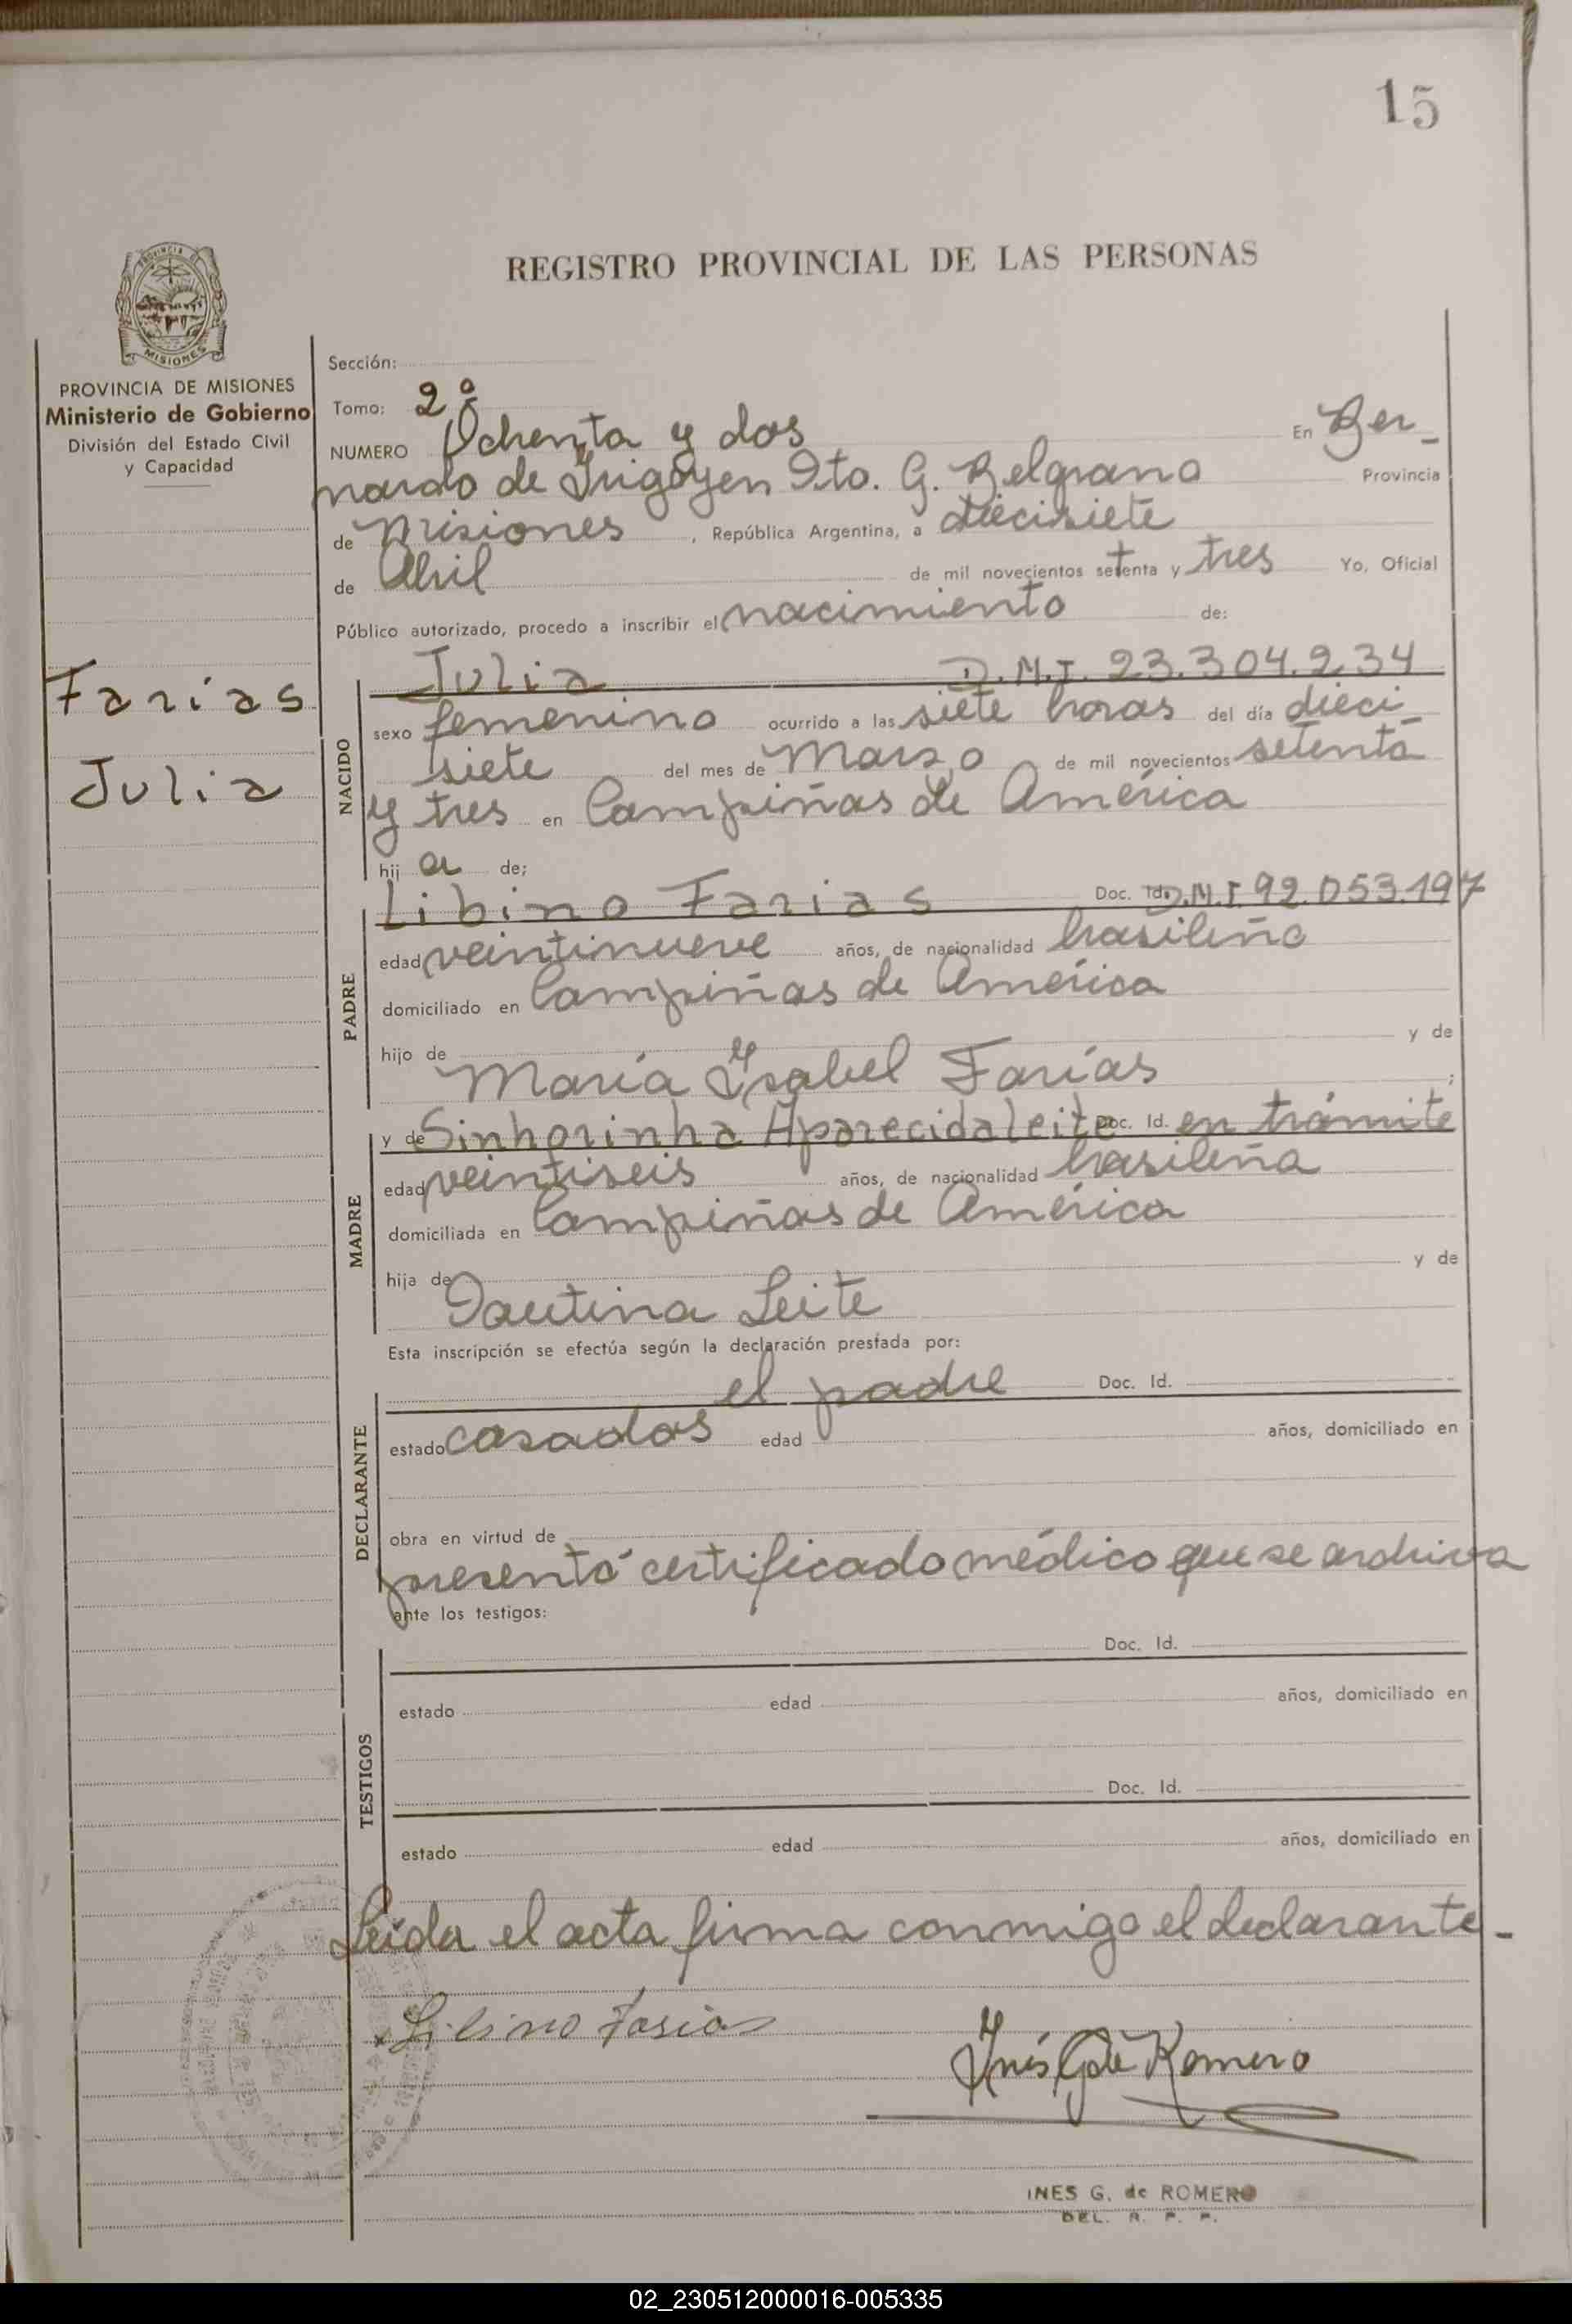 15
REGISTRO PROVINCIAL DE LAS PERSONAS
PROVINCIA DE MISIONES
Ministerio de Gobierno
División del Estado Civil
y Capacidad
Farías
Julia
Sección:
Tomo: 2º
NUMERO Ochenta y dos En Ber_
nardo de Irigoyen Dto. G. Belgrano Provincia
de Misiones , República Argentina, a diecisiete
de Abril de mil novecientos setenta y tres Yo, Oficial
Público autorizado, procedo a inscribir el nacimiento de:
NACIDO
Julia D.N.I. 23.304.234
sexo femenino ocurrido a las siete horas del día dieci_
siete del mes de Marzo de mil novecientos setenta
y tres en Campiñas de América
hij a de;
PADRE
Libino Farias Doc. Id. D.N.I. 92.053.197
edad veintinueve años, de nacionalidad brasileño
domiciliado en Campiñas de América
hijo de y de
María Ysabel Farías ;
MADRE
y de Sinhorinha Aparecida Leite Doc. Id. en trámite
edad veintiseis años, de nacionalidad brasileña
domiciliada en Campiñas de América
hija de y de
Leite
Esta inscripción se efectúa según la declaración prestada por:
DECLARANTE
el padre Doc. Id.
estado casados edad años, domiciliado en
obra en virtud de
presentó certificado médico que se archiva
ante los testigos:
TESTIGOS
Doc. Id.
estado edad años, domiciliado en
Doc. Id.
estado edad años, domiciliado en
Leída el acta firma conmigo el declarante_
Libino Farias
Inés G de Romero
INES G. de ROMERO
DEL. R. P. P.
02_230512000016-005335